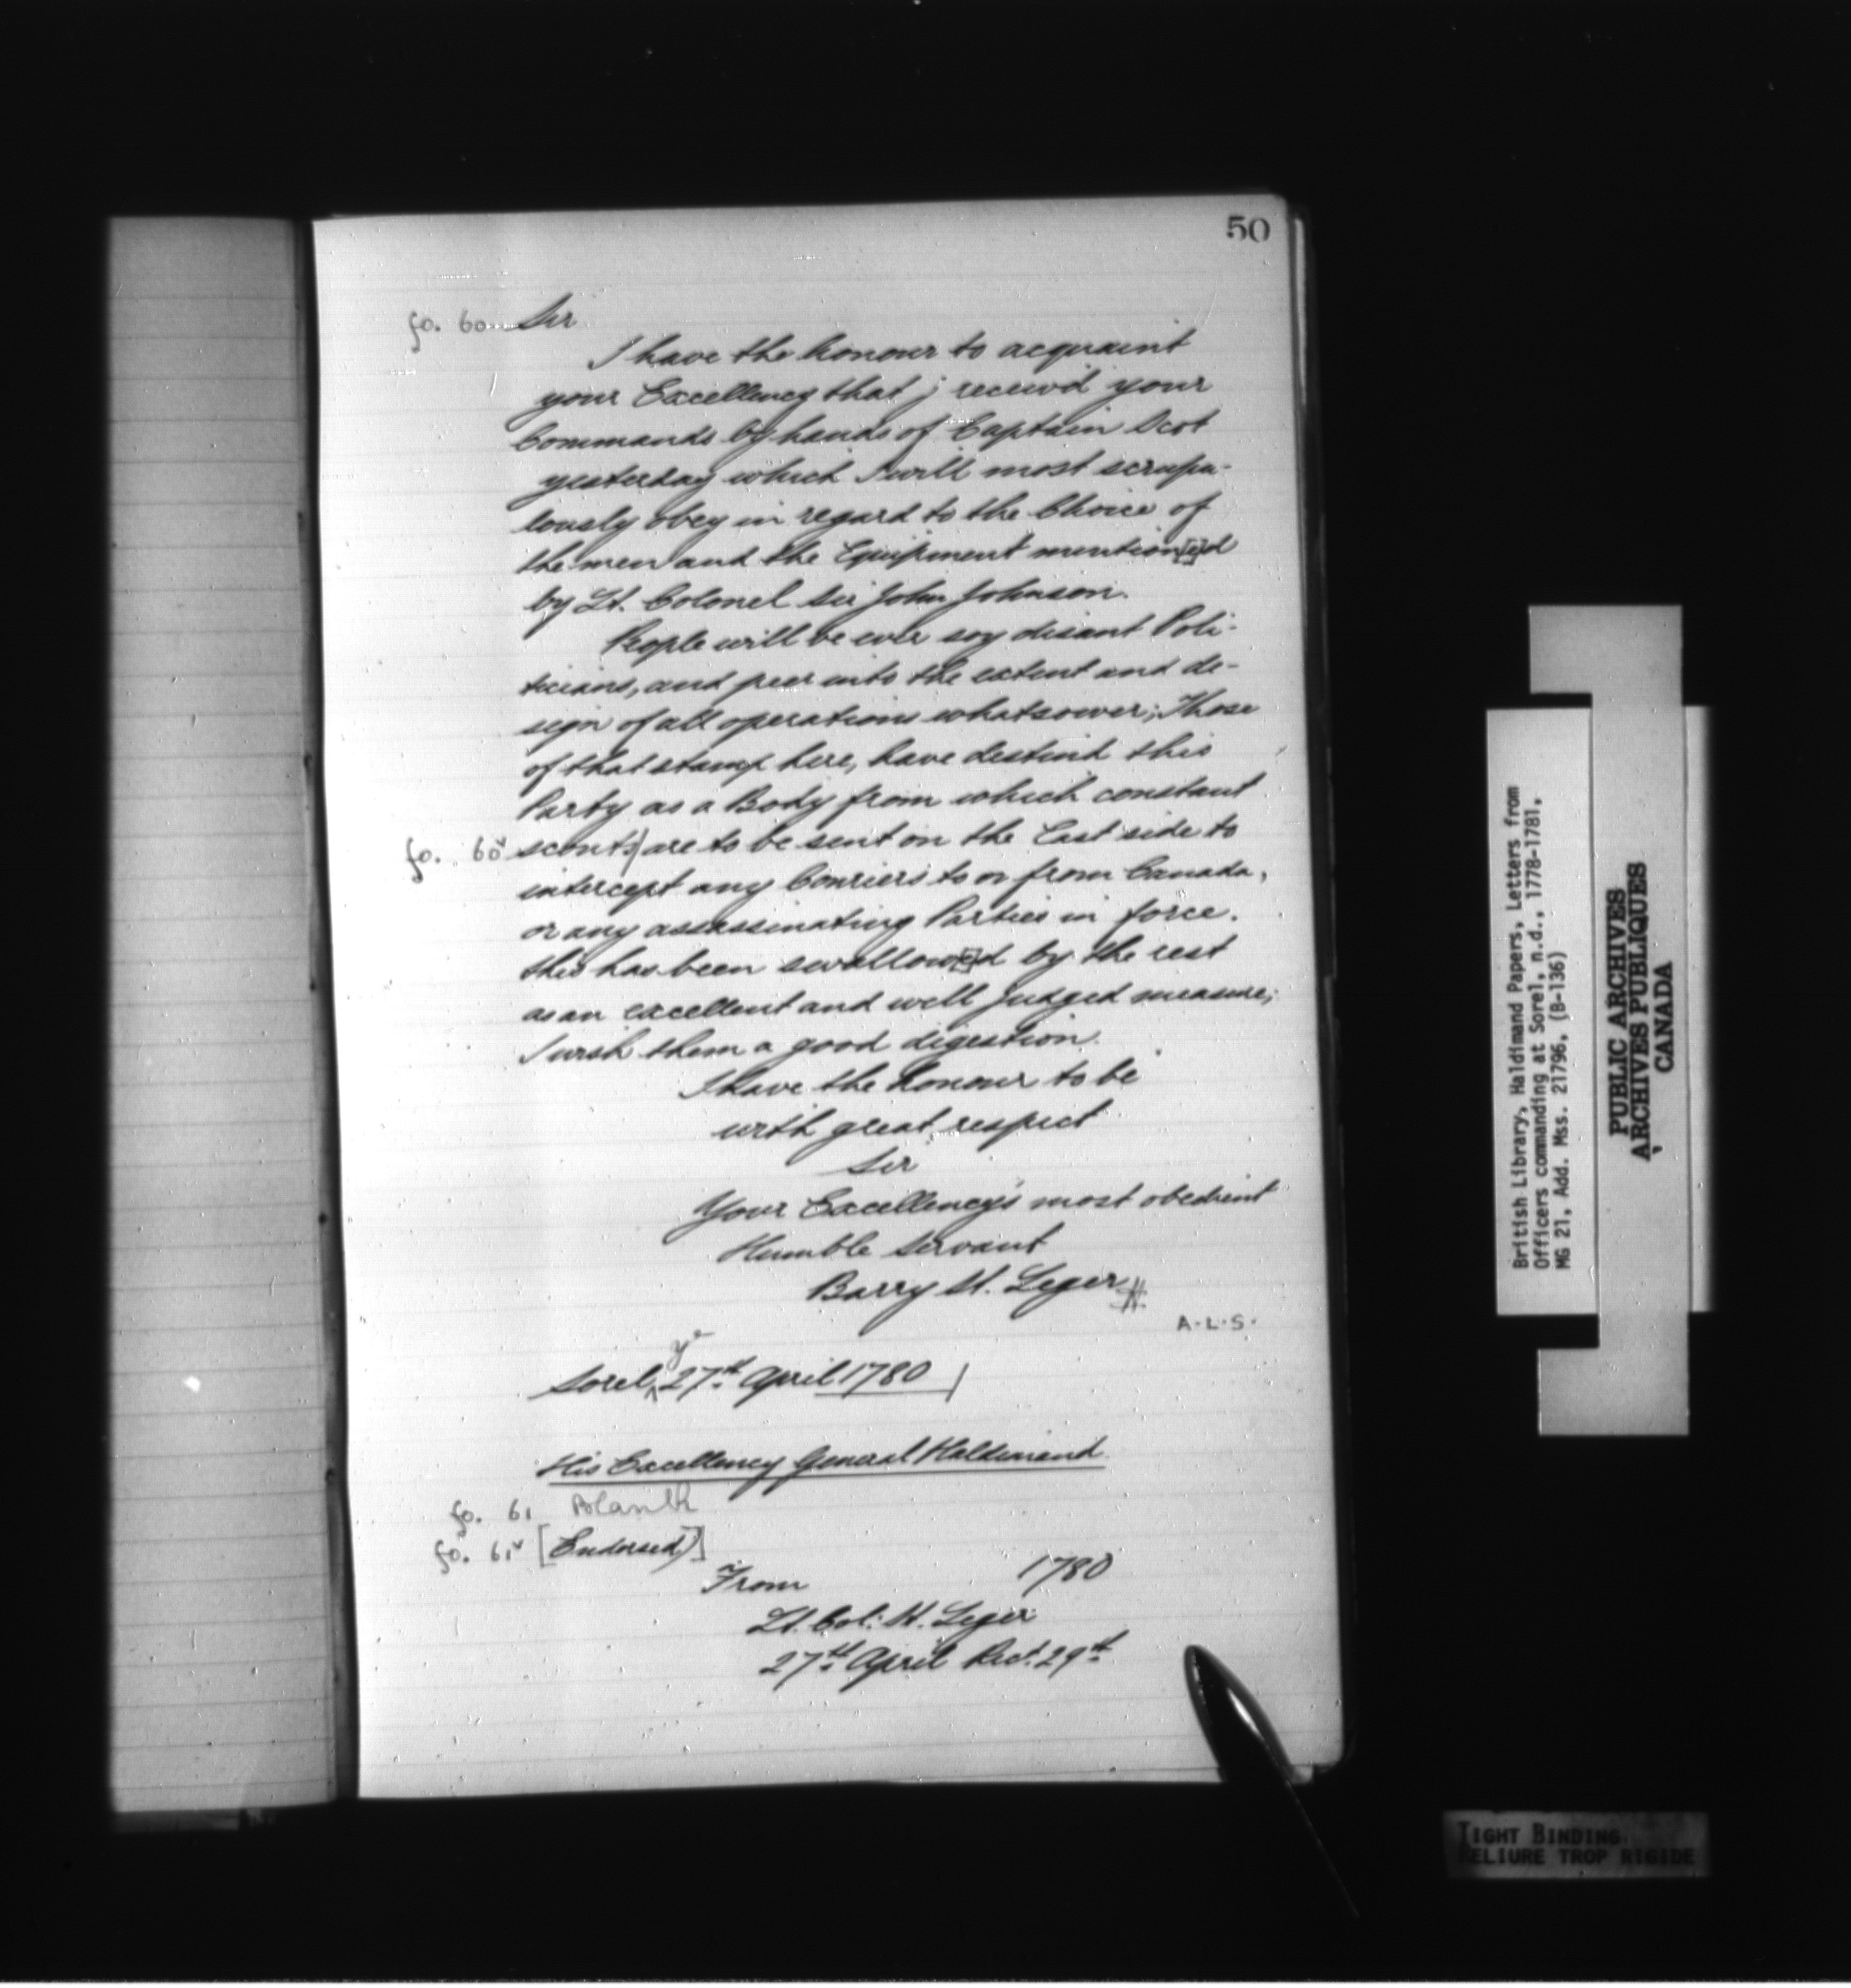 50
fo. 60 Sir
I have the honour to acquaint
your Excellency that j receiv'd your
Commands by hands of Captain Scot
yesterday which I will most scrupu-
lously obey in regard to the Choice of
the men and the Equipment mention[e]d
by Lt. Colonel Sir John Johnson.
People will be ever soy disant Poli-
ticians, and peer into the extent and de-
sign of all operations whatsoever; Those
of that stamp here, have destind this
Party as a Body from which constant
fo. 60v scouts/ are to be sent on the East side to
intercept any Couriers to or from Canada,
or any assassinating Parties in force.
this has been swallow[e]d by the rest
as an excellent and well judged measure;
I wish them a good digestion.
I have the honour to be
with great respect
Sir
Your Excellency's most obedient
Humble Servant
Barry St. Leger
A.L.S.
Sorel, ye 27th April 1780
His Excellency General Haldimand
fo. 61 Blank
fo. 61v [Endorsed)]
From 1780
Lt. Col: St. Leger
27th April Recd. 29th
British Library, Haldimand Papers, Letters from
Officers commanding at Sorel, n.d., 1778-1781,
MG 21, Add. Mss. 21796, (B-136)
PUBLIC ARCHIVES
ARCHIVES PUBLIQUES
CANADA
TIGHT BINDING
RELIURE TROP RIGIDE